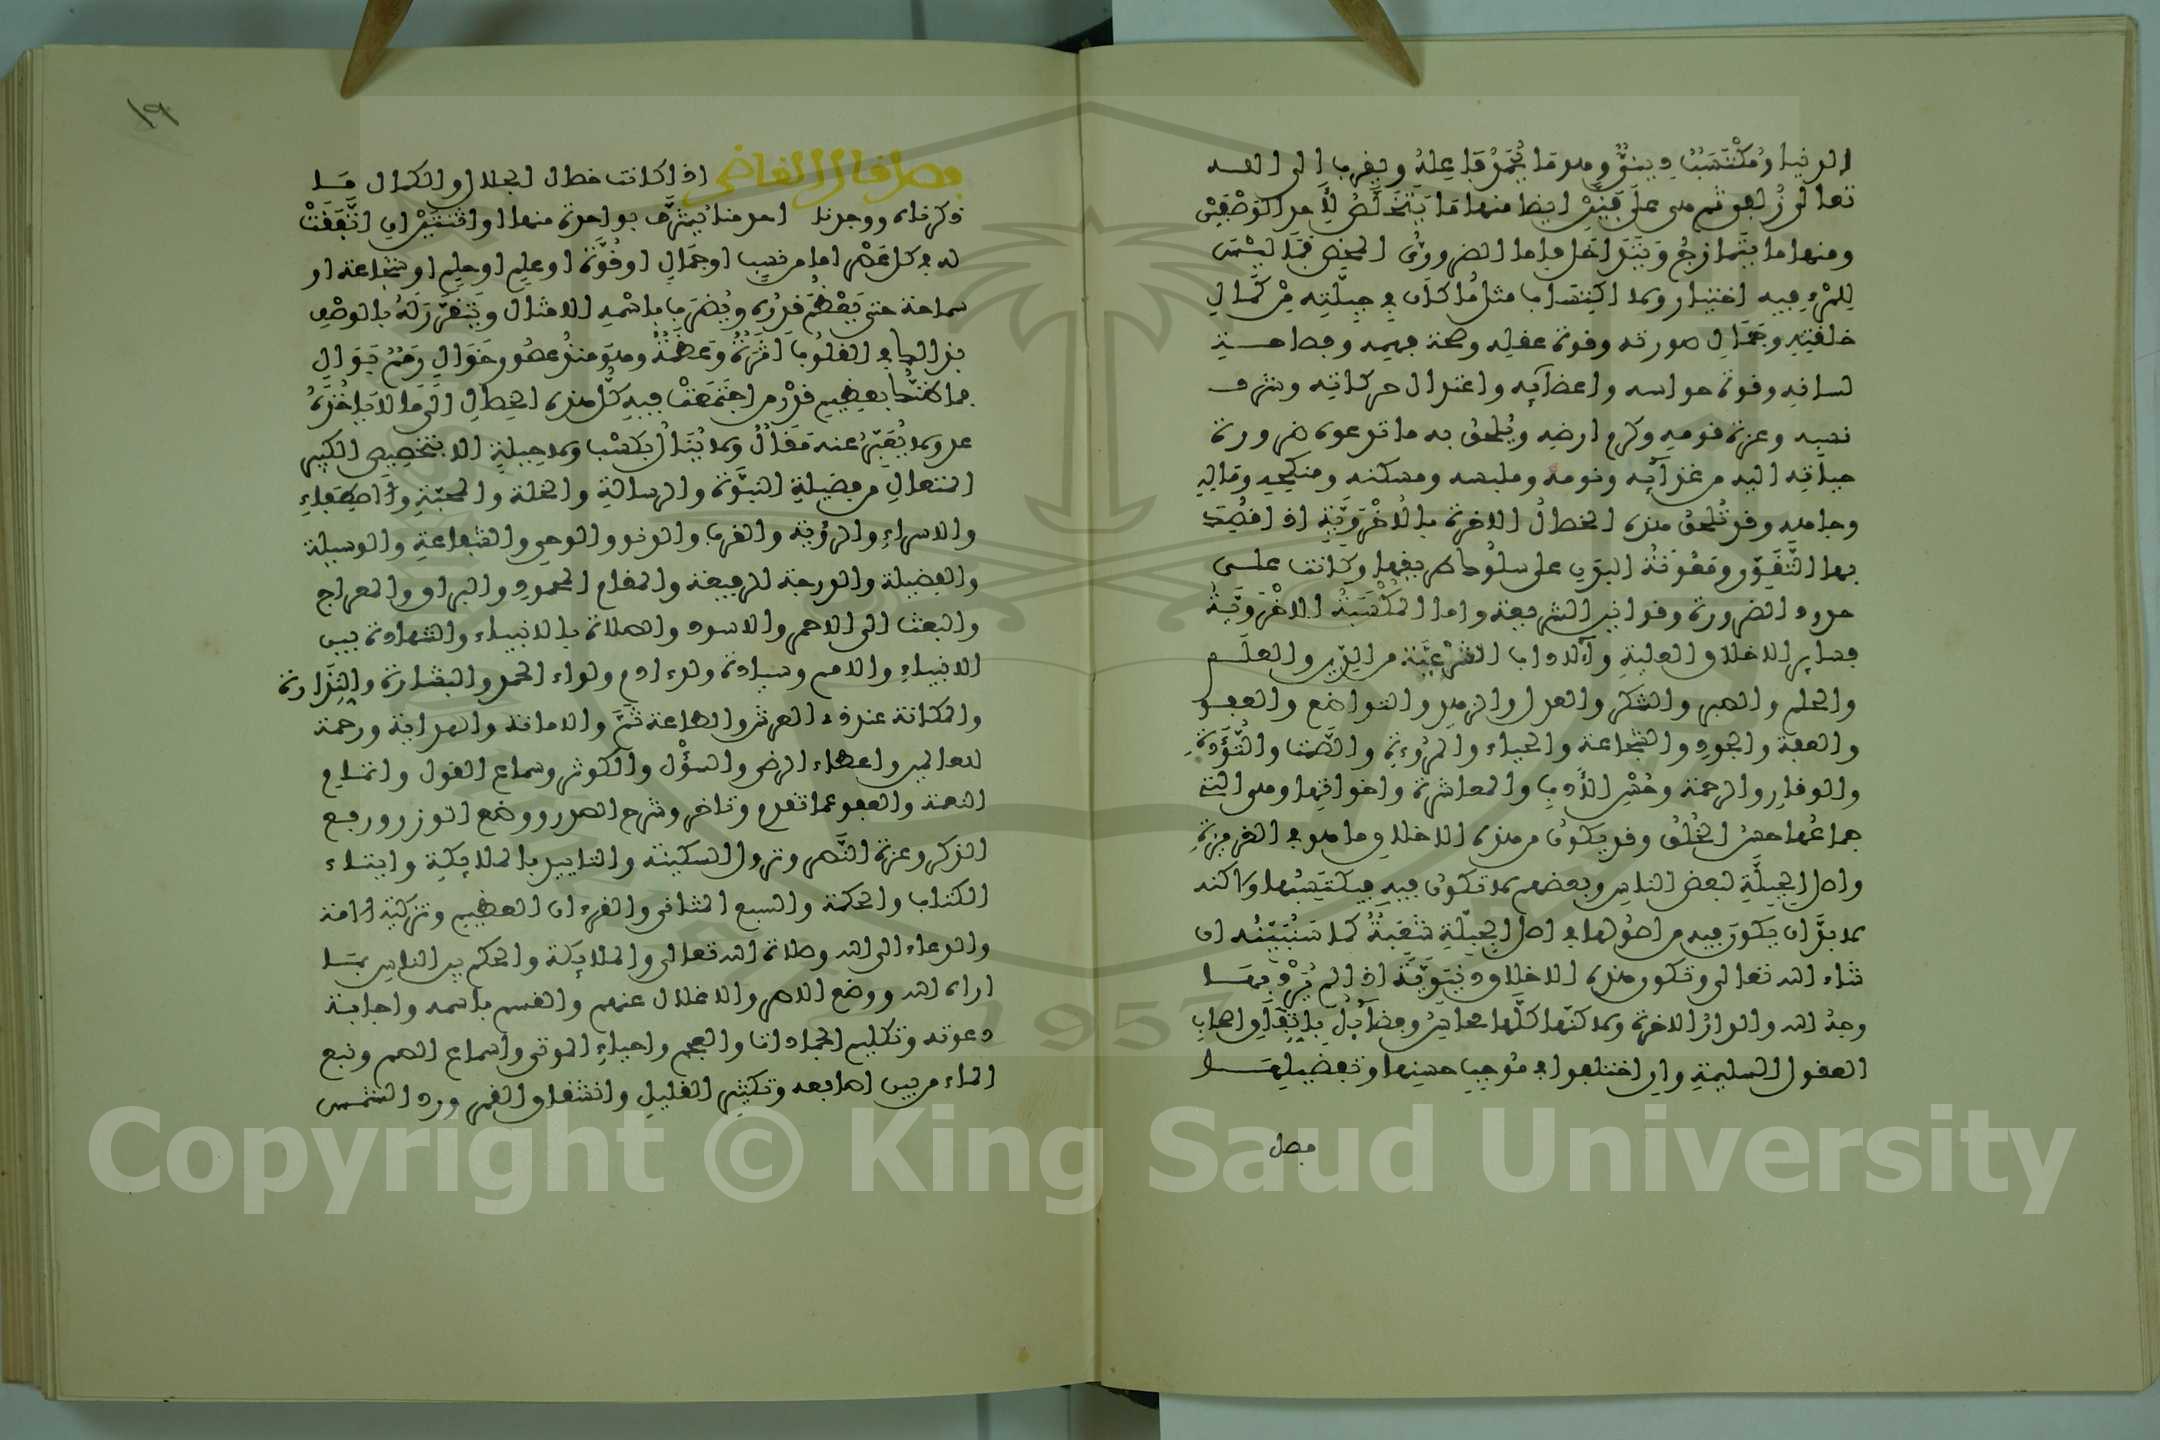 الدنيا ومكتسب ديني وهو ما يحمد فاعله ويقرب الى الله
تعالى زلفى ثم هي على فنين ايضا منها ما يتخلص لأحد الوصفين
ومنها ما يتمازج ويتداخل فاما الضروري المحض فما ليس
للمرء فيه اختيار ولا اكتساب مثل ما كان في جبلته من كمال
خلقته وجمال صورته وقوة عقله وصحة فهمه وفصاحة
لسانه وقوة حواسه واعضائه واعتدال حركاته وشرف
نسبه وعزة قومه وكرم ارضه ويلحق به ما تدعوه ضرورة
حياته اليه من غذائه ونومه وملبسه ومسكنه ومنكحه وماله
وجاهه وقد تلحق هذه الخصال الاخرة بالاخروية اذا قصد
بها التقوى ومعونة البدن على سلوك طريقها وكانت على
حدود الضرورة وقوانين الشريعة واما المكتسبة الاخروية
فسائر الاخلاق العلية والاداب الشرعية من الدين والعلم
والحلم والصبر والشكر والعدل والزهد والتواضع والعفو
والعفة والجود والشجاعة والحياء والمروءة والصمت والتؤدة
والوقار والرحمة وحسن الأدب والمعاشرة واخواتها وهي التي
جماعها حسن الخلق وقد يكون من هذه الاخلاق ما هو في الغريزة
واصل الجبلة لبعض الناس وبعضهم لا تكون فيه فيكتسبها ولاكنه
لا بد ان يكون فيه من اصولها في اصل الجبلة شعبة كما سنبينه ان
شاء الله تعالى وتكون هذه الاخلاق دنيوية اذا لم يرد بها
وجه الله والدار الاخرة ولاكنها كلها محاسن وفضائل باتفاق اصحاب
العقول السليمة وان اختلفوا في موجب حسنها وتفضيلها
فصل
١٩
فصل قال القاضي اذا كانت خصال الجلال والكمال ما
ذكرناه ووجدنا احد منا يشرف بواحدة منها او اثنتين ان اتفقت
له في كل عصر اما من نسب او جمال او قوة او علم او حلم او شجاعة او
سماحة حتى يعظم قدره ويضرب باسمه الامثال ويتقرر له بالوصف
بذالك في القلوب اثرة وعظمة وهو منذ عصور خوال رمم بوال
فما ظنك بعظيم قدر من اجتمعت فيه كل هذه الخصال الى ما لا ياخذه
عد ولا يعبر عنه مقال ولا ينال بكسب ولا حيلة الا بتخصيص الكبير
المتعال من فضيلة النبوة والرسالة والخلة والمحبة والاصطفاء
والاسراء والرؤية والقرب والدنو والوحي والشفاعة والوسيلة
والفضيلة والدرجة الرفيعة والمقام المحمود والبراق والمعراج
والبعث الى الاحمر والاسود والصلاة بالانبياء والشهادة بين
الانبياء والامم وسيادة ولد ادم ولواء الحمد والبشارة والنذارة
والمكانة عند ذي العرش والطاعة ثم والامانة والهداية ورحمة
للعالمين واعطاء الرضى والسؤل والكوثر وسماع القول واتمام
النعمة والعفو عما تقدم وتاخر وشرح الصدر ووضع الوزر ورفع
الذكر وعزة النصر ونزول السكينة والتاييد بالملائكة وايتاء
الكتاب والحكمة والسبع المثاني والقرءان العظيم وتزكية امة
والدعاء الى الله وصلاة الله تعالى والملائكة والحكم بين الناس بما
اراه الله ووضع الاصر والاغلال عنهم والقسم باسمه واجابة
دعوته وتكليم الجمادات والعجم واحياء الموتى واسماع الصم ونبع
الماء من بين اصابعه وتكثير القليل وانشقاق القمر ورد الشمس
Copyright © King Saud University
1957